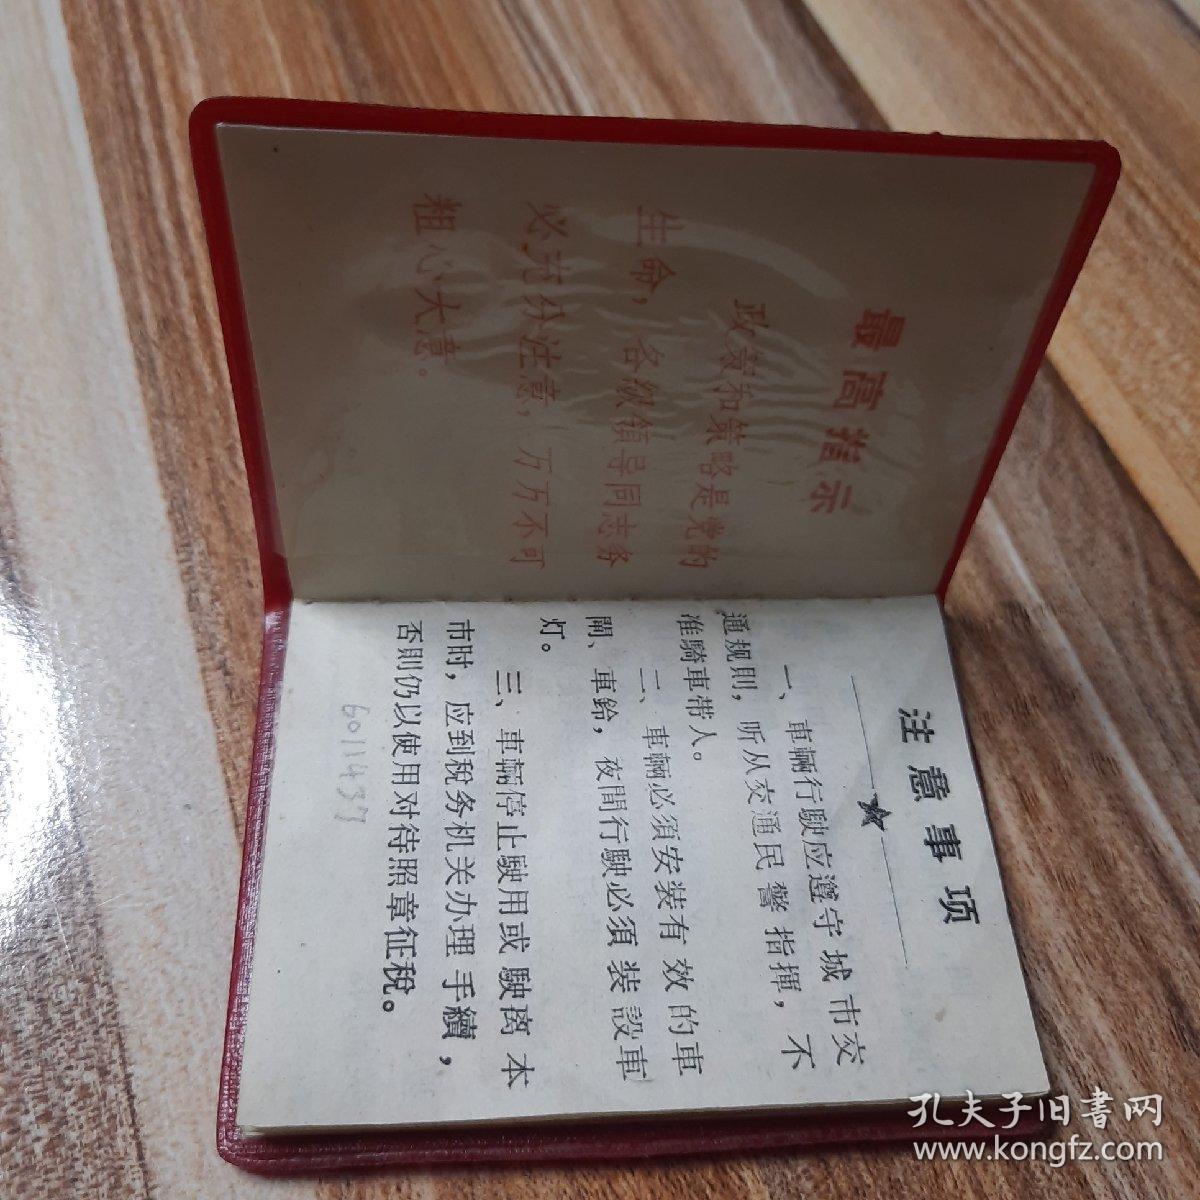 最高指示
政策和策略是党的
生命，各級領导同志务
必充分注意，万万不可
粗心大意。
注意事项
一、車輛行駛应遵守城市交
通规則，听从交通民警指揮，不
准騎車带人。
二、車輛必須安装有效的車
閘、車鈴，夜間行駛必须装設車
灯。
三、車輛停止駛用或駛离本
市时，应到稅务机关办理手續，
否則仍以使用对待照章征稅。
6011437
孔夫子旧書网
www.kongfz.com